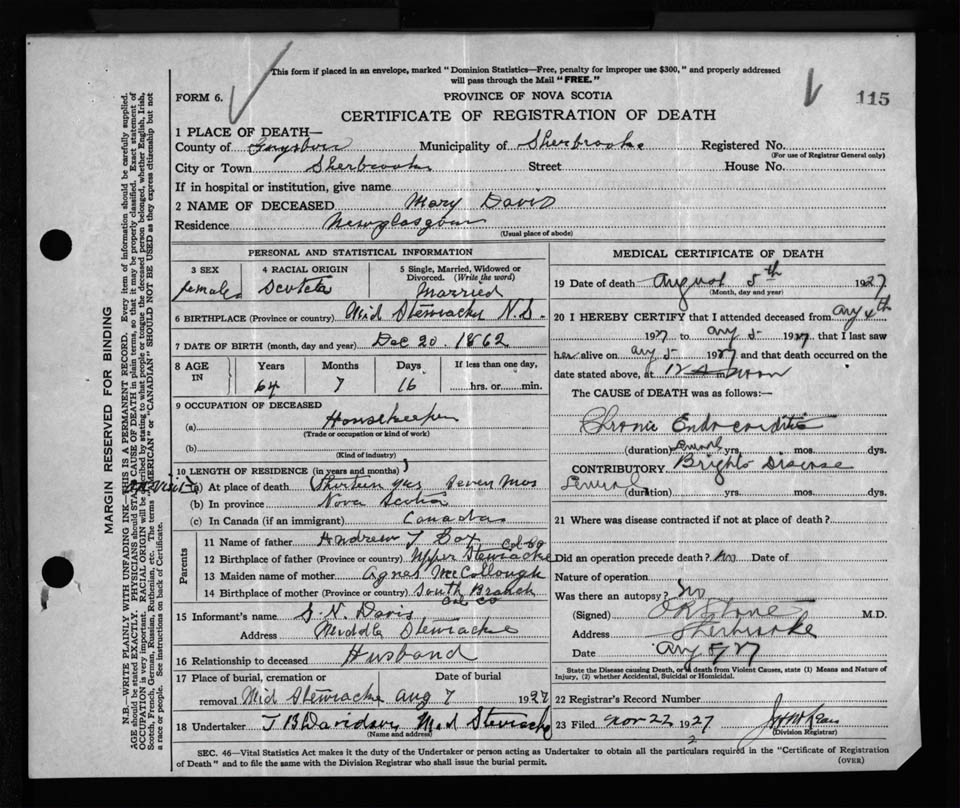 This form if placed in an envelope, marked "Dominion Statistics—Free, penalty for improper use $300," and properly addressed
will pass through the Mail "FREE."
FORM 6.
PROVINCE OF NOVA SCOTIA
115
CERTIFICATE OF REGISTRATION OF DEATH
1 PLACE OF DEATH—
County of Municipality of Sherbrooke Registered No.
(For use of Registrar General only)
City or Town Sherbrooke Street House No.
If in hospital or institution, give name
2 NAME OF DECEASED Mary Davis
Residence Newglasgow
(Usual place of abode)
PERSONAL AND STATISTICAL INFORMATION
3 SEX 4 RACIAL ORIGIN 5 Single, Married, Widowed or
Divorced. (Write the word)
female Scotch Married
6 BIRTHPLACE (Province or country) Mid Stewiacke N.S.
7 DATE OF BIRTH (month, day and year) Dec 20. 1862
8 AGE IN Years Months Days If less than one day,
64 7 16 hrs. or min.
9 OCCUPATION OF DECEASED
(a) Housekeeper
(Trade or occupation or kind of work)
(b)
(Kind of industry)
10 LENGTH OF RESIDENCE (in years and months)
(a) At place of death Thirteen yrs Seven Mos
(b) In province Nova Scotia
(c) In Canada (if an immigrant) Canada
Parents
11 Name of father Andrew J Cox
12 Birthplace of father (Province or country) Upper Stewiacke Col Co
13 Maiden name of mother Agnes McCollough
14 Birthplace of mother (Province or country) South Branch
Col Co
15 Informant's name S. N. Davis
Address Middle Stewiacke
16 Relationship to deceased Husband
17 Place of burial, cremation or Date of burial
removal Mid Stewiacke Aug 7 1927
18 Undertaker J B Davidson, Mid Stewiacke
(Name and address)
MEDICAL CERTIFICATE OF DEATH
19 Date of death August 5th 1927
(Month, day and year)
20 I HEREBY CERTIFY that I attended deceased from Aug 4th
1927 to Aug 5 1927, that I last saw
her alive on Aug 5 1927 and that death occurred on the
date stated above, at 12 noon
The CAUSE of DEATH was as follows:—
Chronic Endocarditis
(duration) Several yrs. mos. dys.
CONTRIBUTORY Brights Disease
Several (duration) yrs. mos. dys.
21 Where was disease contracted if not at place of death?
Did an operation precede death? No Date of
Nature of operation
Was there an autopsy? No
(Signed) M.D.
Address Sherbrooke
Date Aug 5/27
State the Disease causing Death, or in death from Violent Causes, state (1) Means and Nature of
Injury, (2) whether Accidental, Suicidal or Homicidal.
22 Registrar's Record Number
23 Filed Nov 22 1927
2
(Division Registrar)
SEC. 46—Vital Statistics Act makes it the duty of the Undertaker or person acting as Undertaker to obtain all the particulars required in the "Certificate of Registration
of Death" and to file the same with the Division Registrar who shall issue the burial permit.
(OVER)
MARGIN RESERVED FOR BINDING
N.B.—WRITE PLAINLY WITH UNFADING INK—THIS IS A PERMANENT RECORD. Every item of information should be carefully supplied.
AGE should be stated EXACTLY. PHYSICIANS should STATE CAUSE OF DEATH in plain terms, so that it may be properly classified. Exact statement of
OCCUPATION is very important. RACIAL ORIGIN will be described by stating to what people or tongue the deceased person belonged, whether English, Irish,
Scotch, French, German, Russian, Ruthenian, etc. The terms "AMERICAN" or "CANADIAN" SHOULD NOT BE USED as they express citizenship but not
a race or people. See instructions on back of Certificate.